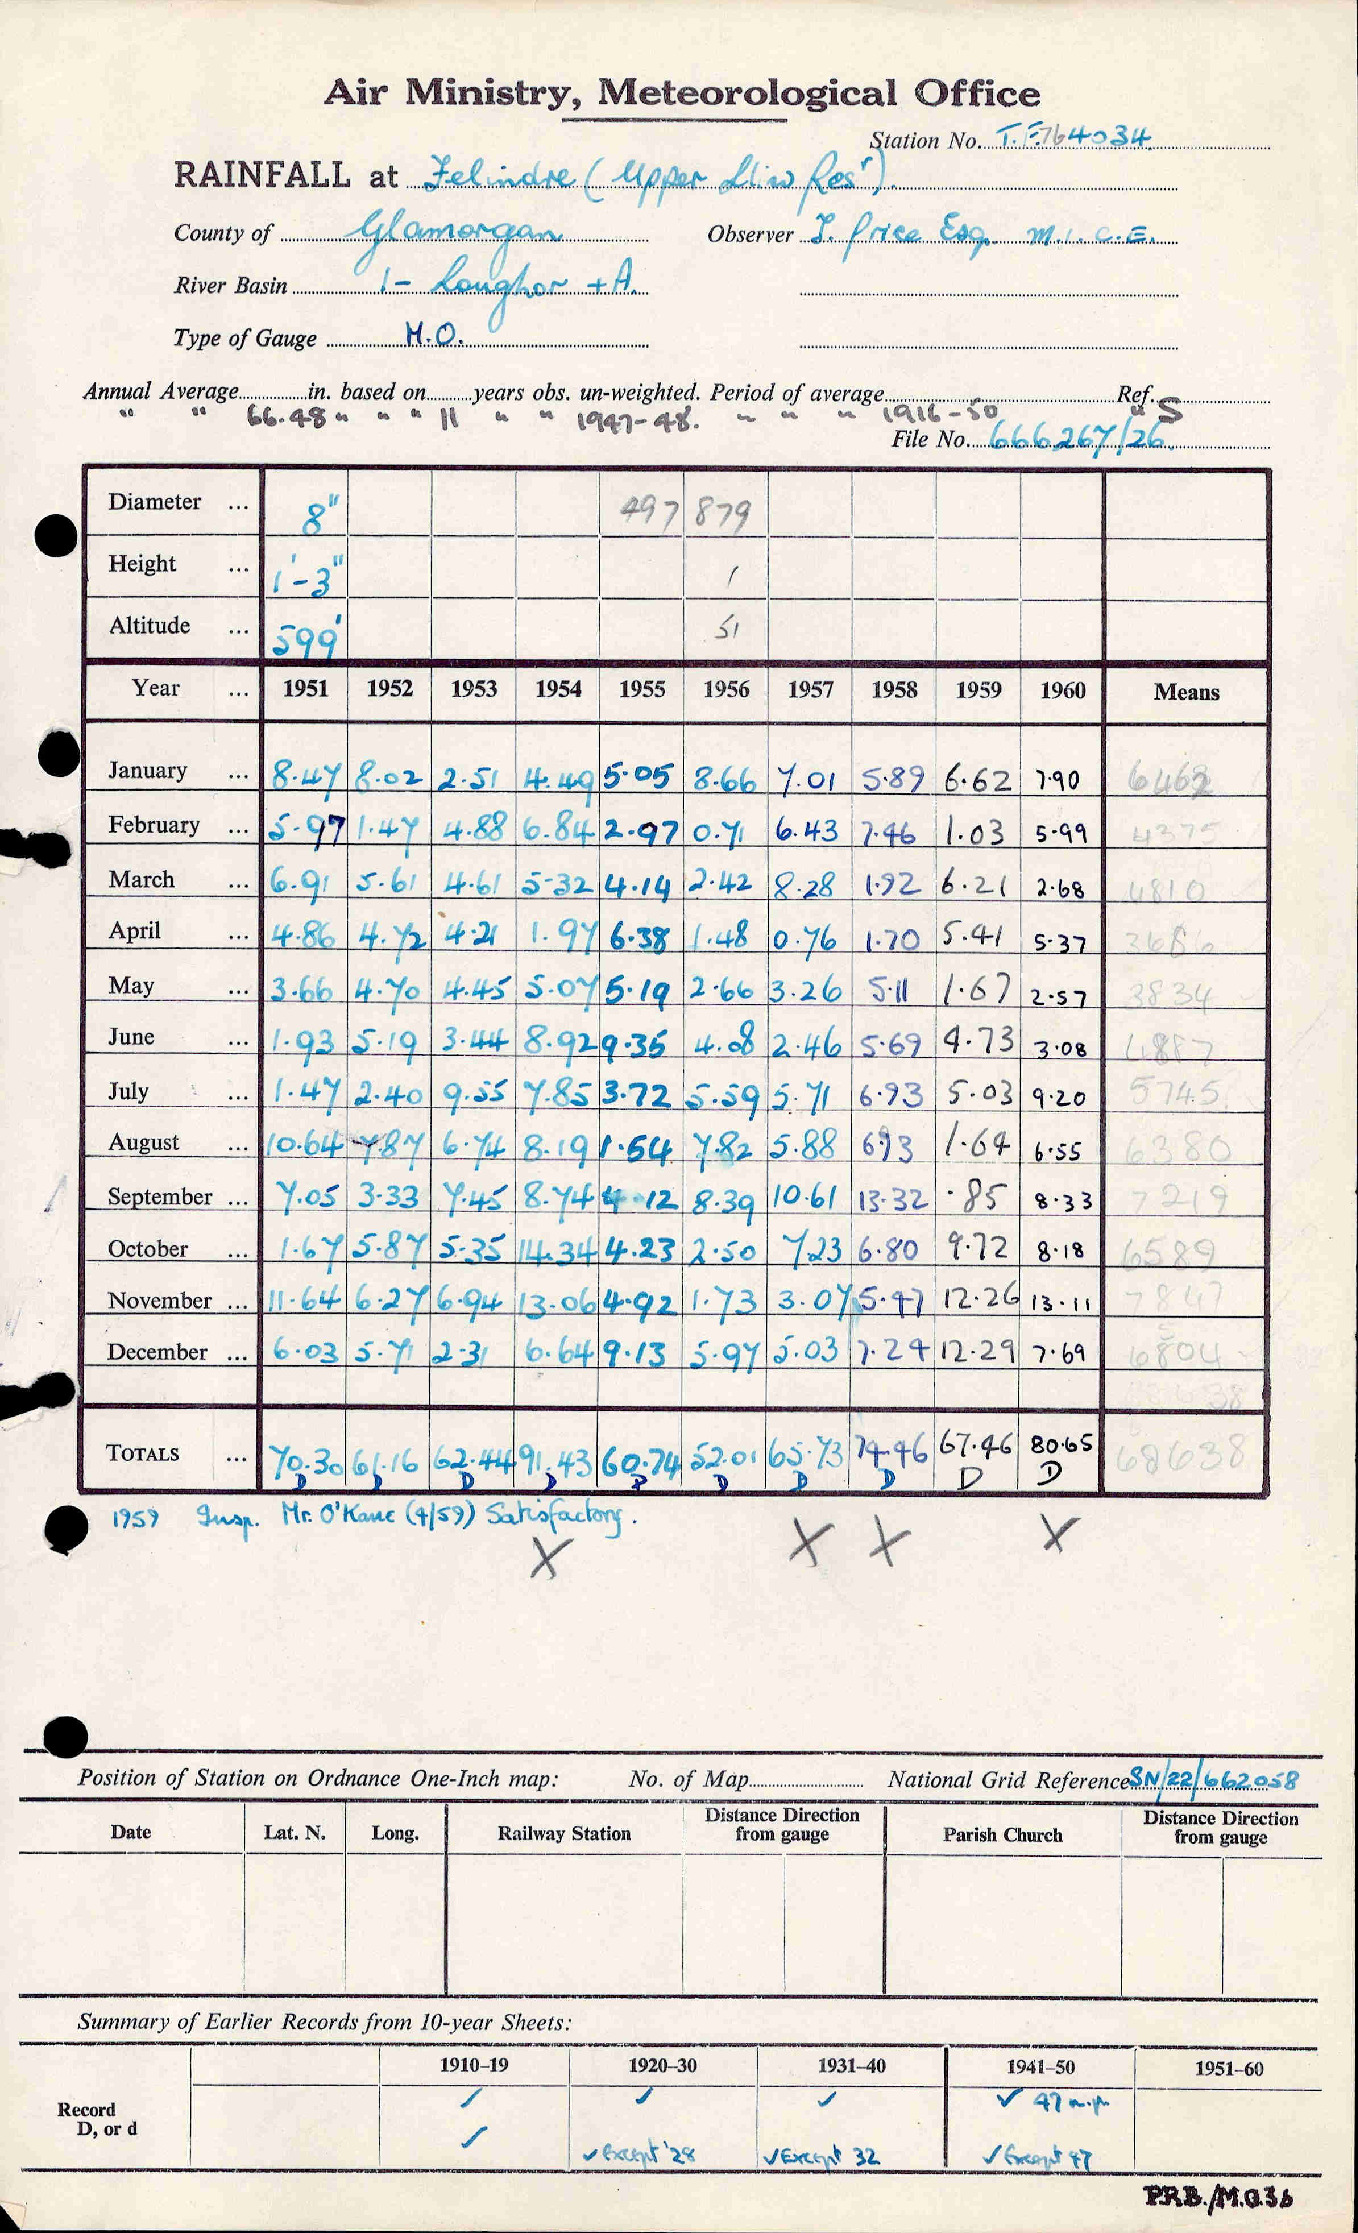 Air Ministry, Meteorological Office
Station No. T.F. 764034
RAINFALL at Felindre (Upper Lliw Resr)
County of Glamorgan Observer T. Price Esq. M.I.C.E.
River Basin 1 - Loughor + A.
Type of Gauge M.O.
Annual Average in. based on years obs. un-weighted. Period of average Ref.
" " 66.48 " " " 11 " " 1947-48. " " " 1916-50 " S
File No. 666267/26
Diameter ... 8" 497 879
Height ... 1'-3" 1
Altitude ... 599' 51
Year ... 1951 1952 1953 1954 1955 1956 1957 1958 1959 1960 Means
January ... 8.47 8.02 2.51 4.49 5.05 8.66 7.01 5.89 6.62 7.90 6462
February ... 5.97 1.47 4.88 6.84 2.97 0.71 6.43 7.46 1.03 5.99 4375
March ... 6.91 5.61 4.61 5.32 4.14 2.42 8.28 1.92 6.21 2.68 4810
April ... 4.86 4.72 4.21 1.97 6.38 1.48 0.76 1.70 5.41 5.37 3686
May ... 3.66 4.70 4.45 5.07 5.19 2.66 3.26 5.11 1.67 2.57 3834
June ... 1.93 5.19 3.44 8.92 9.35 4.08 2.46 5.69 4.73 3.08 4887
July ... 1.47 2.40 9.55 7.85 3.72 5.59 5.71 6.93 5.03 9.20 5745
August ... 10.64 7.87 6.74 8.19 1.54 7.82 5.88 6.93 1.64 6.55 6380
September ... 7.05 3.33 7.45 8.74 4.12 8.39 10.61 13.32 .85 8.33 7219
October ... 1.67 5.87 5.35 14.34 4.23 2.50 7.23 6.80 9.72 8.18 6589
November ... 11.64 6.27 6.94 13.06 4.92 1.73 3.07 5.47 12.26 13.11 7847
December ... 6.03 5.71 2.31 6.64 9.13 5.97 5.03 7.24 12.29 7.69 6804
TOTALS ... 70.30 61.16 62.44 91.43 60.74 52.01 65.73 74.46 67.46 80.65 68638
D D D D D D D D D D
1959 Insp. Mr. O'Kane (4/59) Satisfactory.
X X X X
Position of Station on Ordnance One-Inch map: No. of Map National Grid Reference SN/22/662058
Date Lat. N. Long. Railway Station Distance Direction from gauge Parish Church Distance Direction from gauge
Summary of Earlier Records from 10-year Sheets:
1910–19 1920–30 1931–40 1941–50 1951–60
Record ✓ ✓ ✓ ✓ 47
D, or d ✓ ✓ Except '28 ✓ Except 32 ✓ Except 47
P.R.B./M.O.36